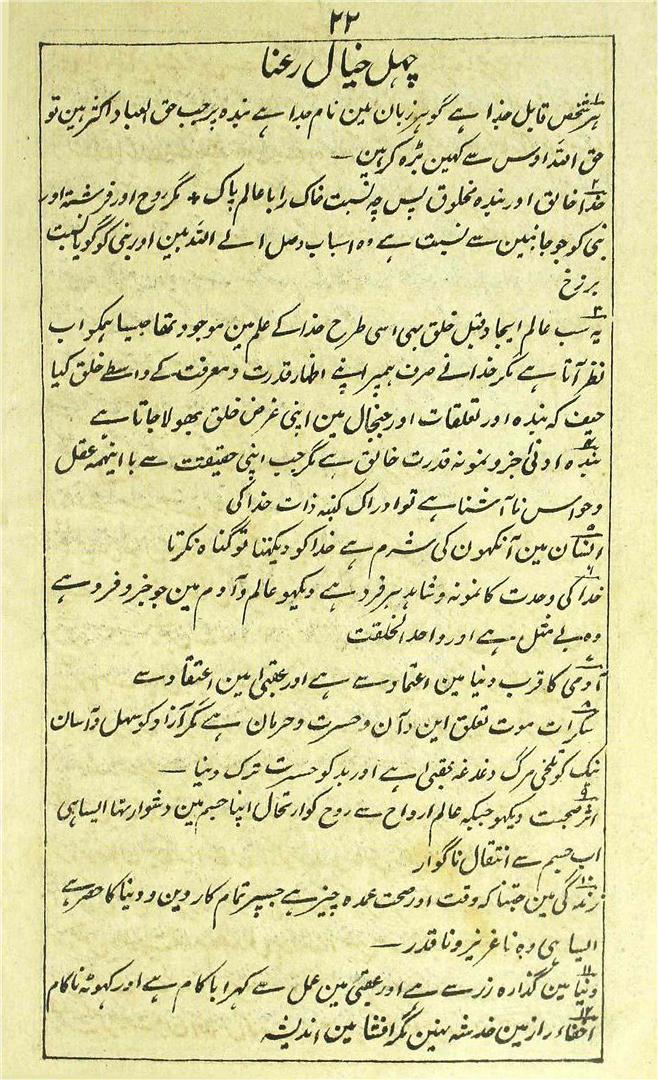 ۲۲
چہل خیال رعنا
۱ ہر شخص قابل خدا ہے گو ہر زبان مین نام خدا ہے بندہ پر جب حق العباد اکثر ہین تو
حق اللہ اوس سے کہین بڑہ کر ہین —
۲ خدا خالق اور بندہ مخلوق پس چہ نسبت خاک را با عالم پاک مگر روح اور فرشتہ اور
نبی کو جو جانبین سے نسبت ہے وہ اسباب وصل الے اللہ ہین اور بنی کو گویا نسبت
برزخ
۳ یہ سب عالم ایجاد قبل خلق بہی اسی طرح خدا کے علم مین موجود تھا جیسا ہمکو اب
نظر آتا ہے مگر خدا نے صرف ہمپر اپنے اظہار قدرت و معرفت کے واسطے خلق کیا
حیف کہ بندہ اور تعلقات اور جنجال مین اپنی غرض خلق بھولا جاتا ہے
۴ بندہ ادنی جزو نمونہ قدرت خالق ہے مگر جب اپنی حقیقت سے با اینہمہ عقل
و حواس نا آشنا ہے تو ادراک کنہ ذات خدا کی
۵ انسان مین آنکھون کی شرم ہے خدا کو دیکھتا تو گناہ نکرتا
۶ خدا کی وحدت کا نمونہ و شاہد ہر فرد ہے دیکھو عالم و آدم مین جو جزو فرد ہے
وہ بے مثل ہے اور واحد الخلقت
۷ آدمی کا قرب دنیا مین اعتماد سے ہے اور عقبیٰ مین اعتقاد سے
۸ سکرات موت تعلق این و آن و حسرت و حرمان ہے مگر آزاد کو سہل و آسان
نیک کو تلخی مرگ دغدغہ عقبیٰ ہے اور بد کو حسرت ترک دنیا —
۹ اثر صحبت دیکھو جبکہ عالم ارواح سے روح کو ارتحال اپنا جسم مین دشوار تھا ایسا ہی
اب جسم سے انتقال ناگوار
۱۰ زندگی مین جتنا کہ وقت اور صحت عمدہ چیز ہے جسپر تمام کار دین و دنیا کا حصر ہے
ایسا ہی وہ ناعزیز و ناقدر —
۱۱ دنیا مین گذارہ زر سے ہے اور عقبیٰ مین عمل سے کہرا با کام ہے اور کہوٹہ ناکام
۱۲ اخفاء راز مین خدشہ نہین مگر افشا مین اندیشہ